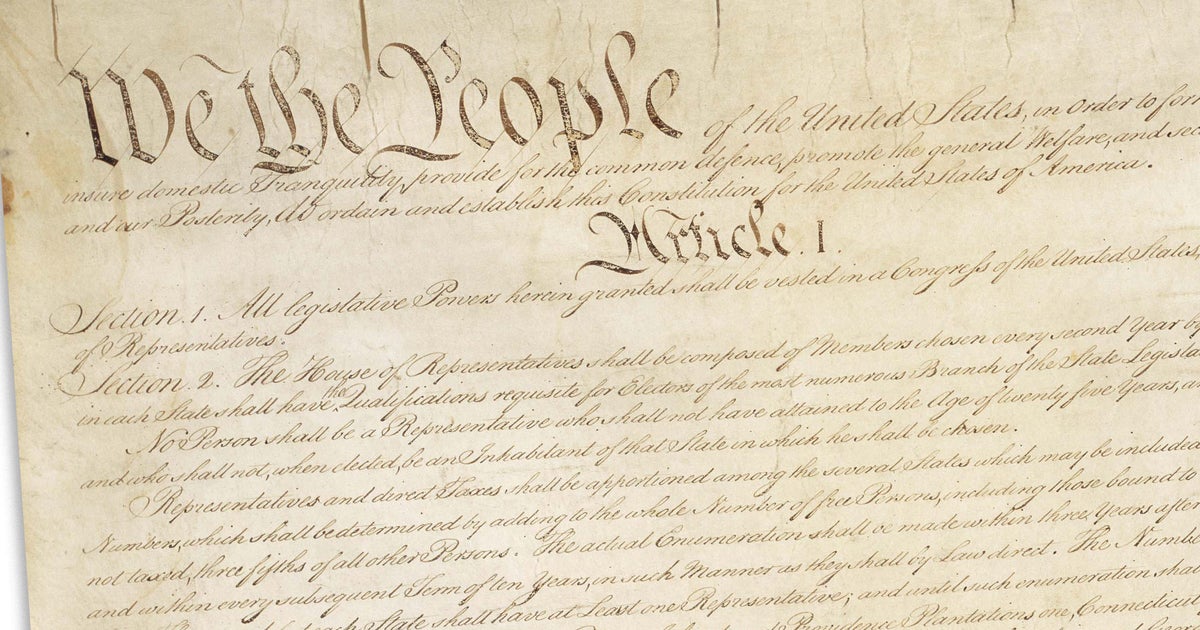 We the People of the United States, in Order to for
insure domestic Tranquility, provide for the common defence, promote the general Welfare, and se
and our Posterity, do ordain and establish this Constitution for the United States of America.
Article. I.
Section. 1. All legislative Powers herein granted shall be vested in a Congress of the United States,
of Representatives.
Section. 2. The House of Representatives shall be composed of Members chosen every second Year b
in each State shall have the Qualifications requisite for Electors of the most numerous Branch of the State Legisla
No Person shall be a Representative who shall not have attained to the Age of twenty five Years, a
and who shall not, when elected, be an Inhabitant of that State in which he shall be chosen.
Representatives and direct Taxes shall be apportioned among the several States which may be included
Numbers, which shall be determined by adding to the whole Number of free Persons, including those bound to
not taxed, three fifths of all other Persons. The actual Enumeration shall be made within three Years after
and within every subsequent Term of ten Years, in such Manner as they shall by Law direct. The Numbe
each State shall have at Least one Representative; and until such enumeration shal
Providence Plantations one, Connecticut